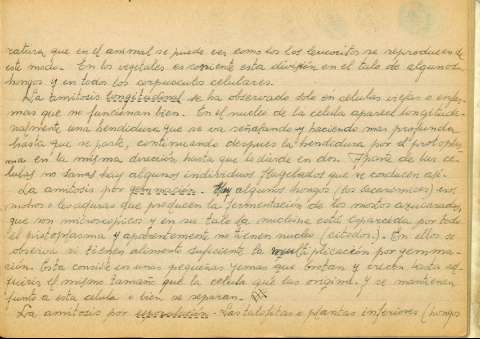 ratura, que en el animal se puede ver como los leucocitos se reproducen de
este modo. En los vegetales es corriente esta división en el talo de algunos
hongos y en todos los corpusculos celulares.
La amitosis longitudinal se ha observado solo en celulas viejas o enfer-
mas que no funcionan bien. En el nucleo de la celula aparece longitudi-
nalmente una hendidura que se va señalando y haciendo mas profunda
hasta que se parte, continuando despues la hendidura por el protoplas-
ma en la misma dirección hasta que la divide en dos. Aparte de las ce-
lulas no sanas hay algunos individuos flagelados que se conducen asi.
La amitosis por gemmación. Hay algunos hongos (los sacaromices)
mohos o levaduras que producen la fermentación de los mostos azucarados
que son microscópicos y en su talo la nucleina está esparcida por todo
el protoplasma y aparentemente no tienen nucleo (citodos). En ellos se
observa si tienen alimento suficiente la multiplicación por gemma-
ción. Esta consiste en unas pequeñas yemas que brotan y crecen hasta ad-
quirir el mismo tamaño que la celula que las origina y se mantienen
junto a esta celula o bien se separan.
La amitosis por esporulación. Las talofitas o plantas inferiores (hongos